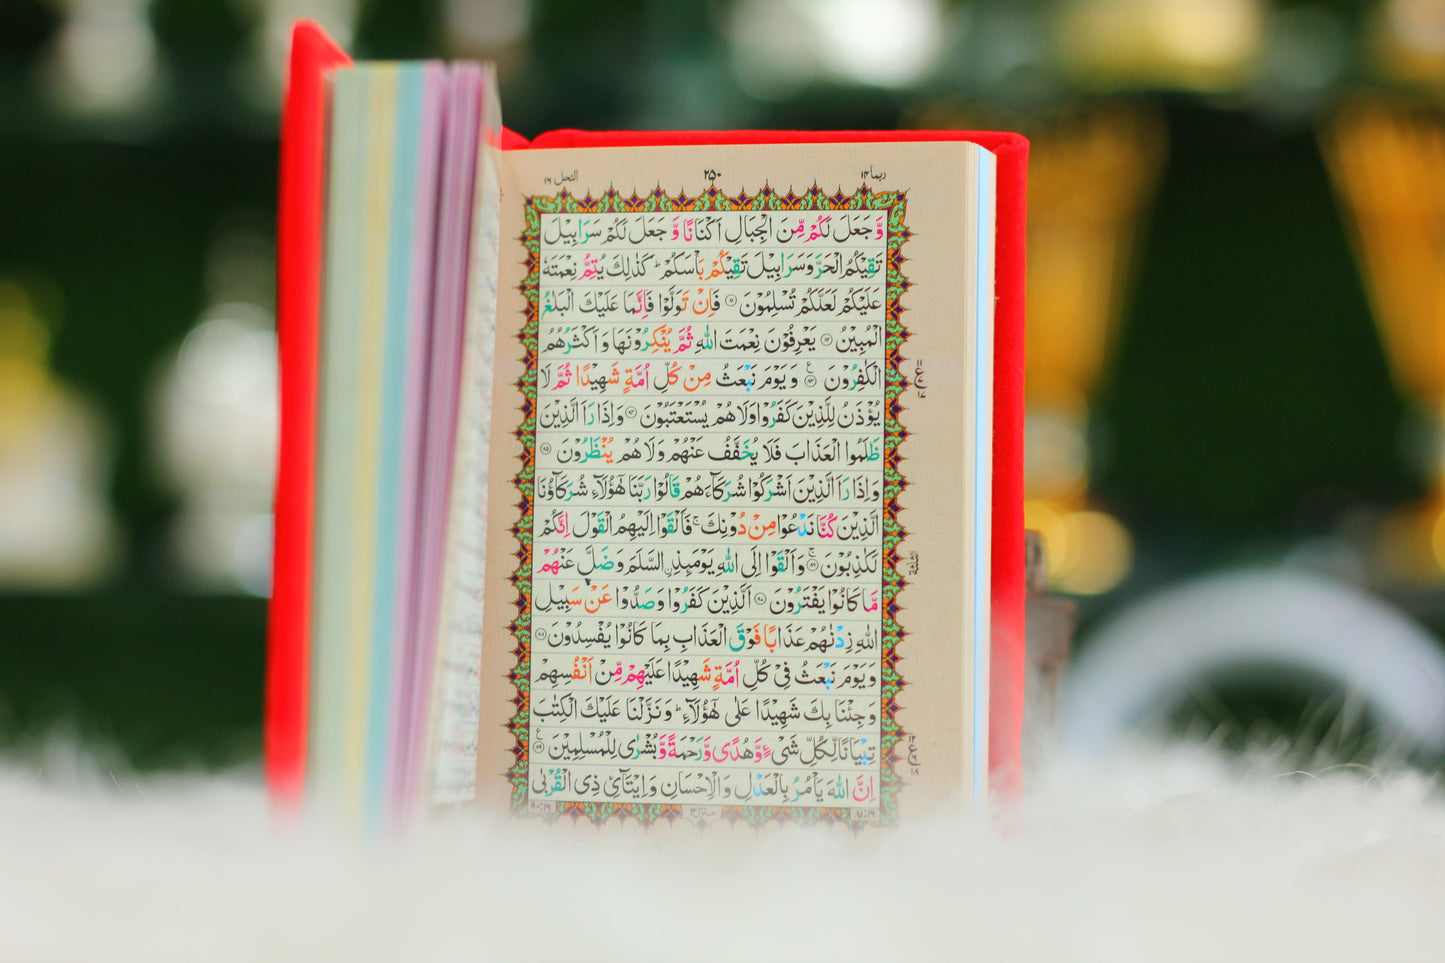 ربما ١٤
٢٥٠
النحل ١٦
وَّجَعَلَ لَكُمْ مِّنَ الْجِبَالِ اَكْنَانًا وَّجَعَلَ لَكُمْ سَرَابِيْلَ
تَقِيْكُمُ الْحَرَّ وَسَرَابِيْلَ تَقِيْكُمْ بَاْسَكُمْ ؕ كَذٰلِكَ يُتِمُّ نِعْمَتَهٗ
عَلَيْكُمْ لَعَلَّكُمْ تُسْلِمُوْنَ ۝۸۱ فَاِنْ تَوَلَّوْا فَاِنَّمَا عَلَيْكَ الْبَلٰغُ
الْمُبِيْنُ ۝۸۲ يَعْرِفُوْنَ نِعْمَتَ اللّٰهِ ثُمَّ يُنْكِرُوْنَهَا وَ اَكْثَرُهُمُ
الْكٰفِرُوْنَ ۝۸۳ وَ يَوْمَ نَبْعَثُ مِنْ كُلِّ اُمَّةٍ شَهِيْدًا ثُمَّ لَا
يُؤْذَنُ لِلَّذِيْنَ كَفَرُوْا وَلَا هُمْ يُسْتَعْتَبُوْنَ ۝۸۴ وَاِذَا رَاَ الَّذِيْنَ
ظَلَمُوا الْعَذَابَ فَلَا يُخَفَّفُ عَنْهُمْ وَلَا هُمْ يُنْظَرُوْنَ ۝۸۵
وَاِذَا رَاَ الَّذِيْنَ اَشْرَكُوْا شُرَكَآءَهُمْ قَالُوْا رَبَّنَا هٰٓؤُلَآءِ شُرَكَآؤُنَا
الَّذِيْنَ كُنَّا نَدْعُوْا مِنْ دُوْنِكَ ۚ فَاَلْقَوْا اِلَيْهِمُ الْقَوْلَ اِنَّكُمْ
لَكٰذِبُوْنَ ۝۸۶ وَاَلْقَوْا اِلَى اللّٰهِ يَوْمَىِٕذِ ِۨالسَّلَمَ وَضَلَّ عَنْهُمْ
مَّا كَانُوْا يَفْتَرُوْنَ ۝۸۷ اَلَّذِيْنَ كَفَرُوْا وَصَدُّوْا عَنْ سَبِيْلِ
اللّٰهِ زِدْنٰهُمْ عَذَابًا فَوْقَ الْعَذَابِ بِمَا كَانُوْا يُفْسِدُوْنَ ۝۸۸
وَ يَوْمَ نَبْعَثُ فِيْ كُلِّ اُمَّةٍ شَهِيْدًا عَلَيْهِمْ مِّنْ اَنْفُسِهِمْ
وَجِئْنَا بِكَ شَهِيْدًا عَلٰى هٰٓؤُلَآءِ ؕ وَنَزَّلْنَا عَلَيْكَ الْكِتٰبَ
تِبْيَانًا لِّكُلِّ شَىْءٍ وَّهُدًى وَّرَحْمَةً وَّبُشْرٰى لِلْمُسْلِمِيْنَ ۝۸۹
اِنَّ اللّٰهَ يَاْمُرُ بِالْعَدْلِ وَالْاِحْسَانِ وَاِيْتَآئِ ذِى الْقُرْبٰى
الثلثة
منزل ٣